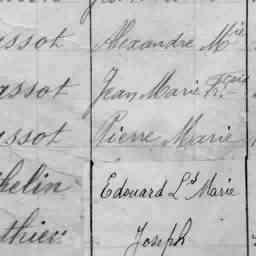 assot Alexandre Mie
assot Jean Marie Fçois
assot Pierre Marie
helin Edouard Ls Marie
thier Joseph